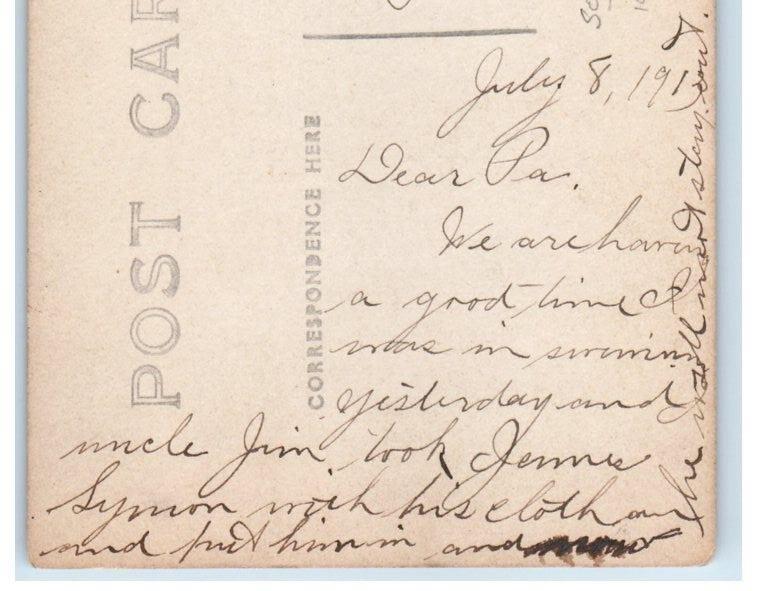 POST CAR
CORRESPONDENCE HERE
July 8, 191
Dear Pa.
We are havin
a good time I
was in swimin
yesterday and
uncle Jim took
Symon with his cloth on
and put him in and
he will not stay out.